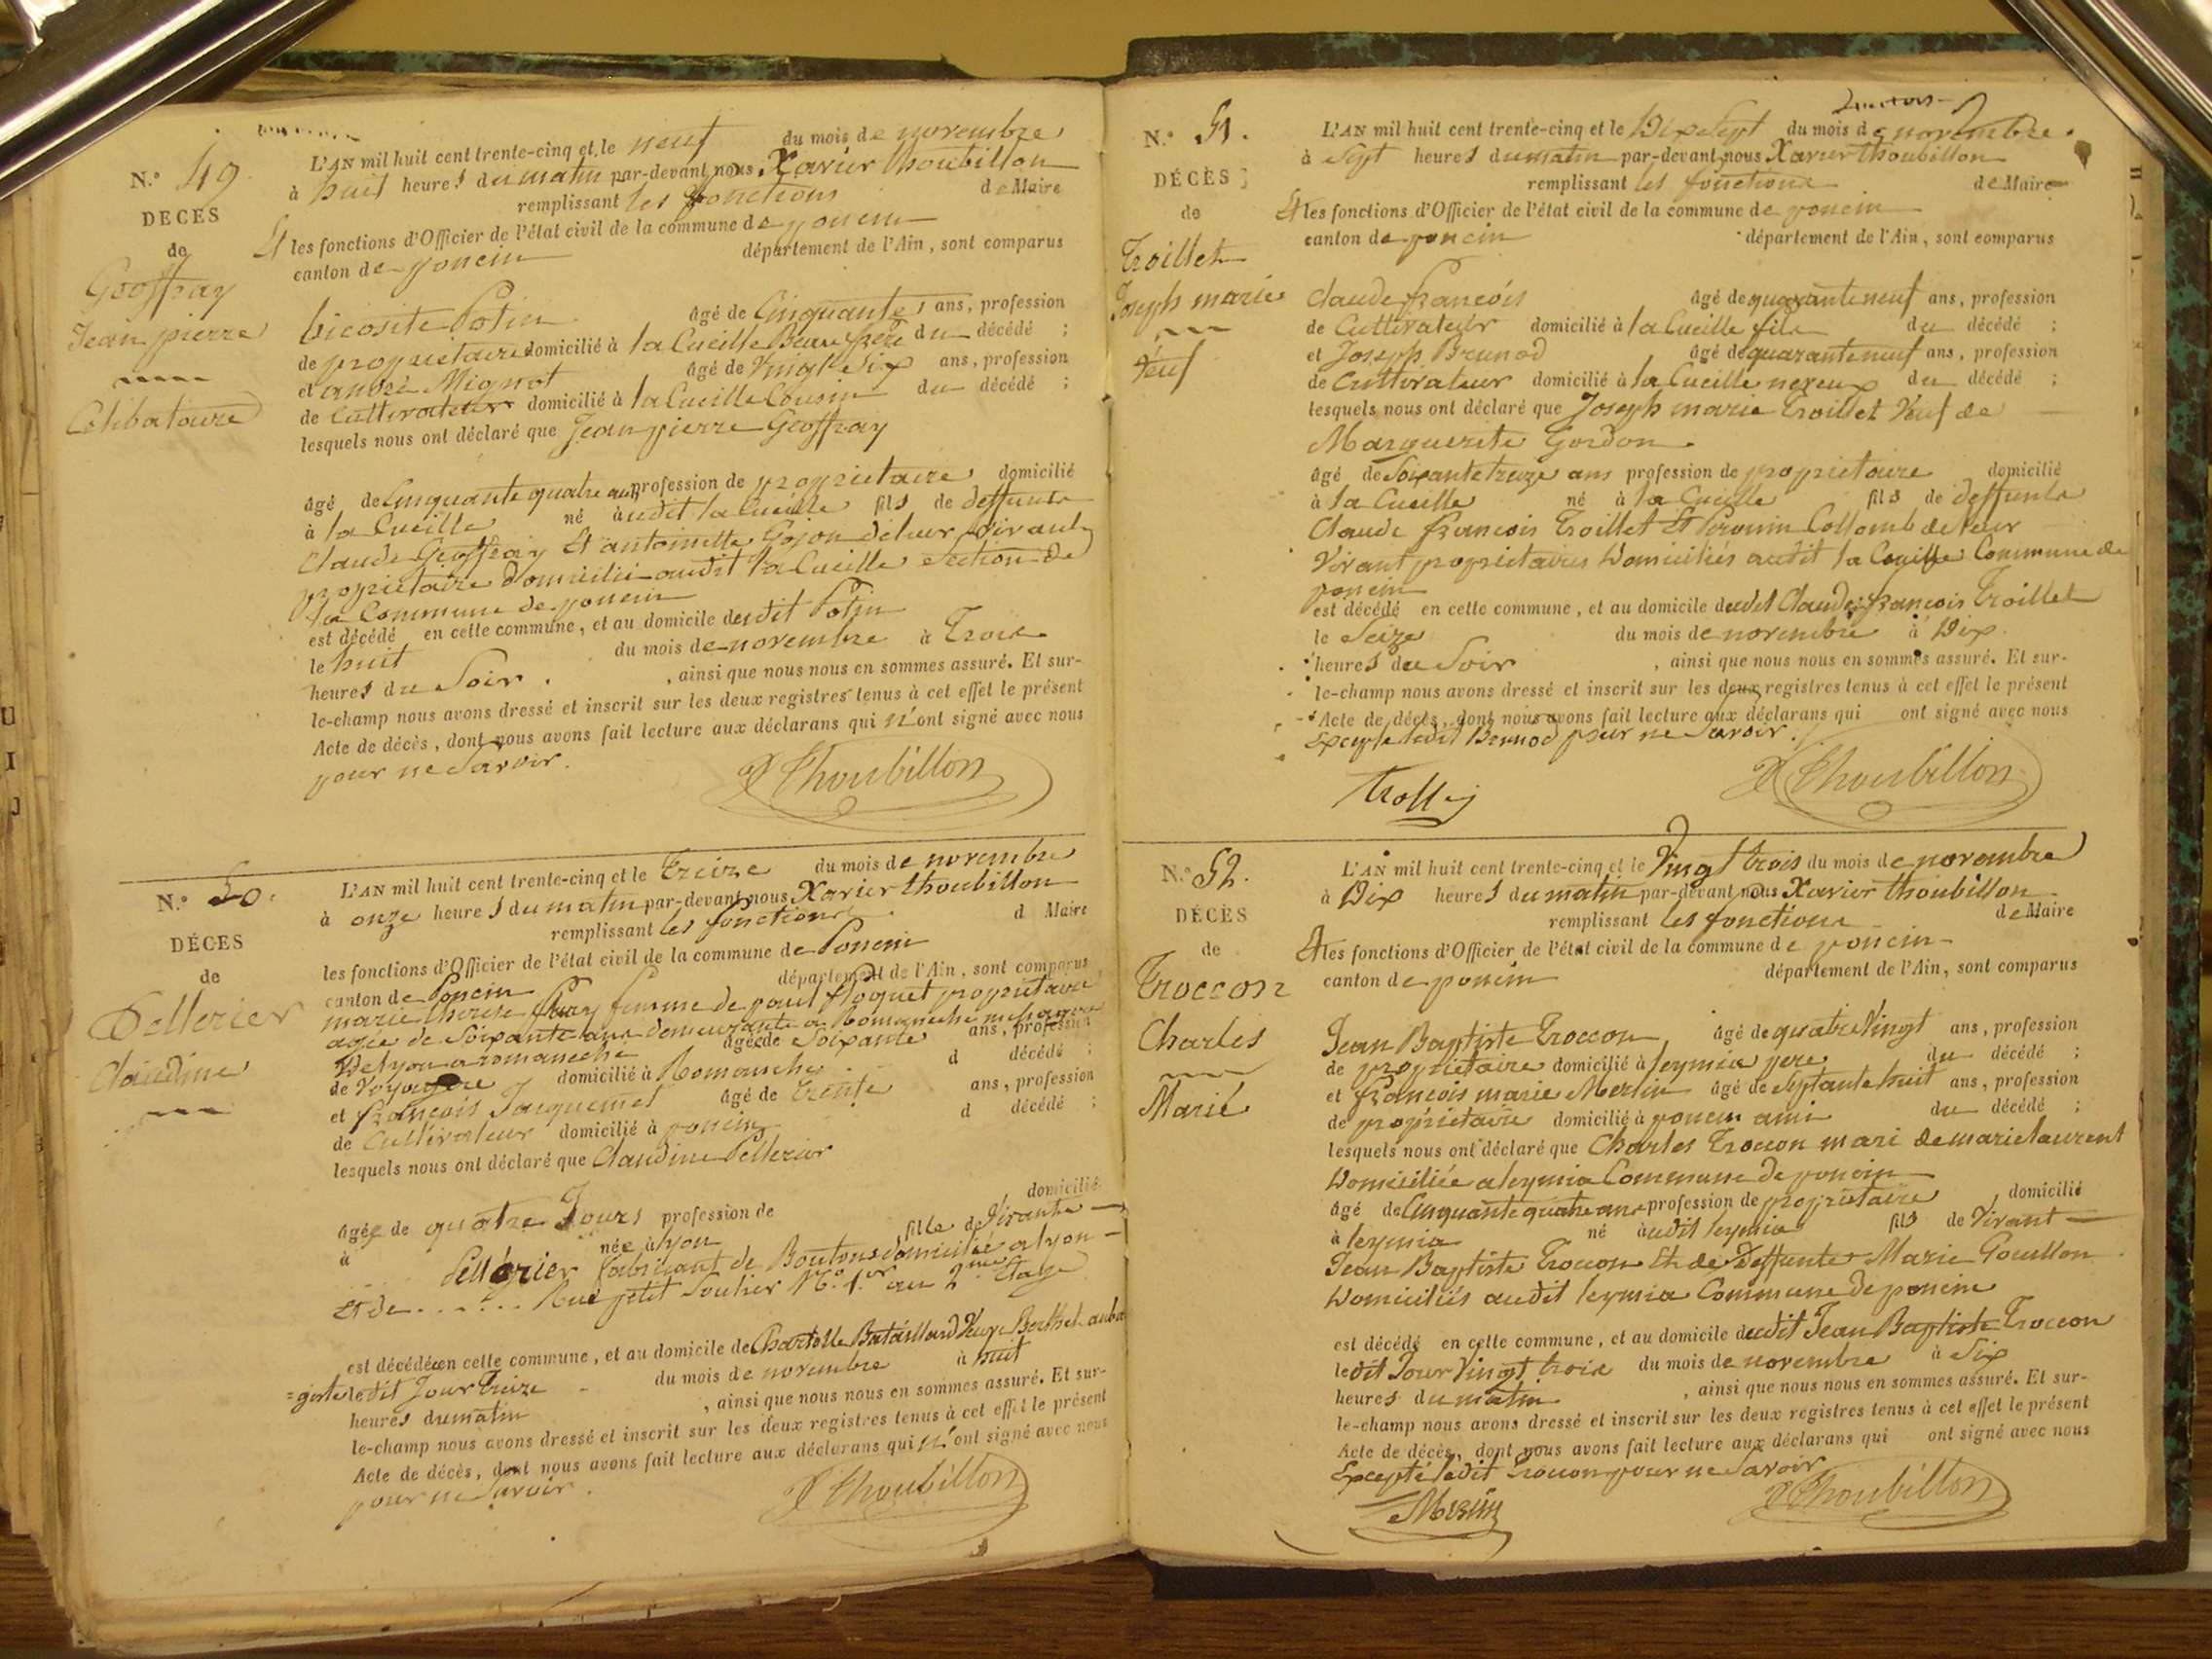 N.º 49.
DECES
de
Geoffray
Jean pierre
Celibataire
L'AN mil huit cent trente-cinq et le neuf du mois de novembre
à huit heures du matin par-devant nous Xavier thoubillon
remplissant les fonctions de Maire
Et les fonctions d'Officier de l'état civil de la commune de poncin
canton de poncin département de l'Ain, sont comparus
Potin âgé de Cinquante ans, profession
de proprietaire domicilié à la Cueille Beau frere du décédé ;
et andré Mignot âgé de Vingt Six ans, profession
de Cultivateur domicilié à la Cueille Cousin du décédé ;
lesquels nous ont déclaré que Jean pierre Geoffray
âgé de Cinquante quatre ans profession de proprietaire domicilié
à la Cueille né audit la Cueille fils de deffunts
Claude Geoffray Et antoinette Gojon de leur vivant
proprietaire domicilié audit la Cueille Section de
la Commune de poncin
est décédé en cette commune, et au domicile dudit Potin
le huit du mois de novembre à Trois
heures du Soir. , ainsi que nous nous en sommes assuré. Et sur-
le-champ nous avons dressé et inscrit sur les deux registres tenus à cet effet le présent
Acte de décès, dont nous avons fait lecture aux déclarans qui n'ont signé avec nous
pour ne Savoir.
X Thoubillon
N.º 50.
DÉCES
de
Pellerier
Claudine
L'AN mil huit cent trente-cinq et le Treize du mois de novembre
à onze heures du matin par-devant nous Xavier thoubillon
remplissant les fonctions d Maire
les fonctions d'Officier de l'état civil de la commune de Poncin
canton de Poncin département de l'Ain, sont comparus
marie therese femme de proprietaire
agée de Soixante ans demeurante a Romaneche
De lyon a romaneche âgée de Soixante ans, profession
de domicilié à Romaneche d décédé ;
et françois Jacquemet âgé de trente ans, profession
de Cultivateur domicilié à poncin d décédé ;
lesquels nous ont déclaré que Claudine Pellerier
âgée de quatre Jours profession de domicilié
à née à lyon fille de Vivante
Pellerier fabricant de Boutons domicilié a lyon
Et de . . . . . . Rue petit Soulier N.º 1.er au 2.me Etage
est décédée en cette commune, et au domicile de Bataillard Veuve Berthet auber
=giste ledit Jour Treize du mois de novembre à huit
heures du matin , ainsi que nous nous en sommes assuré. Et sur-
le-champ nous avons dressé et inscrit sur les deux registres tenus à cet effet le présent
Acte de décès, dont nous avons fait lecture aux déclarans qui n'ont signé avec nous
pour ne Savoir.
X Thoubillon
N.º 51.
DÉCÈS
de
Troillet
Joseph marie
Veuf
L'AN mil huit cent trente-cinq et le Dix Sept du mois de novembre.
à Sept heures du matin par-devant nous Xavier thoubillon
remplissant les fonctions de Maire
Et les fonctions d'Officier de l'état civil de la commune de poncin
canton de poncin département de l'Ain, sont comparus
Claude françois âgé de quarante neuf ans, profession
de Cultivateur domicilié à la Cueille fils du décédé ;
et Joseph Brunod âgé de quarante neuf ans, profession
de Cultivateur domicilié à la Cueille neveux du décédé ;
lesquels nous ont déclaré que Joseph marie Troillet Veuf de
Marguerite Gordon.
âgé de Soixante treize ans profession de proprietaire domicilié
à la Cueille né à la Cueille fils de deffunts
Claude françois Troillet Et Collomb de leur
Vivant proprietaires Domiciliés audit la Cueille Commune de
poncin
est décédé en cette commune, et au domicile dudit Claude françois Troillet
le Seize du mois de novembre à Dix
heures du Soir , ainsi que nous nous en sommes assuré. Et sur-
le-champ nous avons dressé et inscrit sur les deux registres tenus à cet effet le présent
Acte de décès, dont nous avons fait lecture aux déclarans qui ont signé avec nous
Excepté ledit Bernod pour ne Savoir.
X Thoubillon
N.º 52.
DÉCÈS
de
Troccon
Charles
Marié
L'AN mil huit cent trente-cinq et le Vingt trois du mois de novembre
à Dix heures du matin par-devant nous Xavier thoubillon
remplissant les fonctions de Maire
Et les fonctions d'Officier de l'état civil de la commune de poncin
canton de poncin département de l'Ain, sont comparus
Jean Baptiste Troccon âgé de quatre Vingt ans, profession
de proprietaire domicilié à leymia pere du décédé ;
et françois marie Merlin âgé de Septante huit ans, profession
de proprietaire domicilié à poncin ami du décédé ;
lesquels nous ont déclaré que Charles Troccon mari de marie laurent
Domiciliée a leymia Commune de poncin
âgé de Cinquante quatre ans profession de proprietaire domicilié
à leymia né audit leymia fils de Vivant
Jean Baptiste Troccon Et de Deffunte Marie Pouillon
Domiciliés audit leymia Commune de poncin
est décédé en cette commune, et au domicile dudit Jean Baptiste Troccon
ledit Jour Vingt trois du mois de novembre à Six
heures du matin , ainsi que nous nous en sommes assuré. Et sur-
le-champ nous avons dressé et inscrit sur les deux registres tenus à cet effet le présent
Acte de décès, dont nous avons fait lecture aux déclarans qui ont signé avec nous
Excepté ledit Troccon pour ne Savoir
Merlin
X Thoubillon